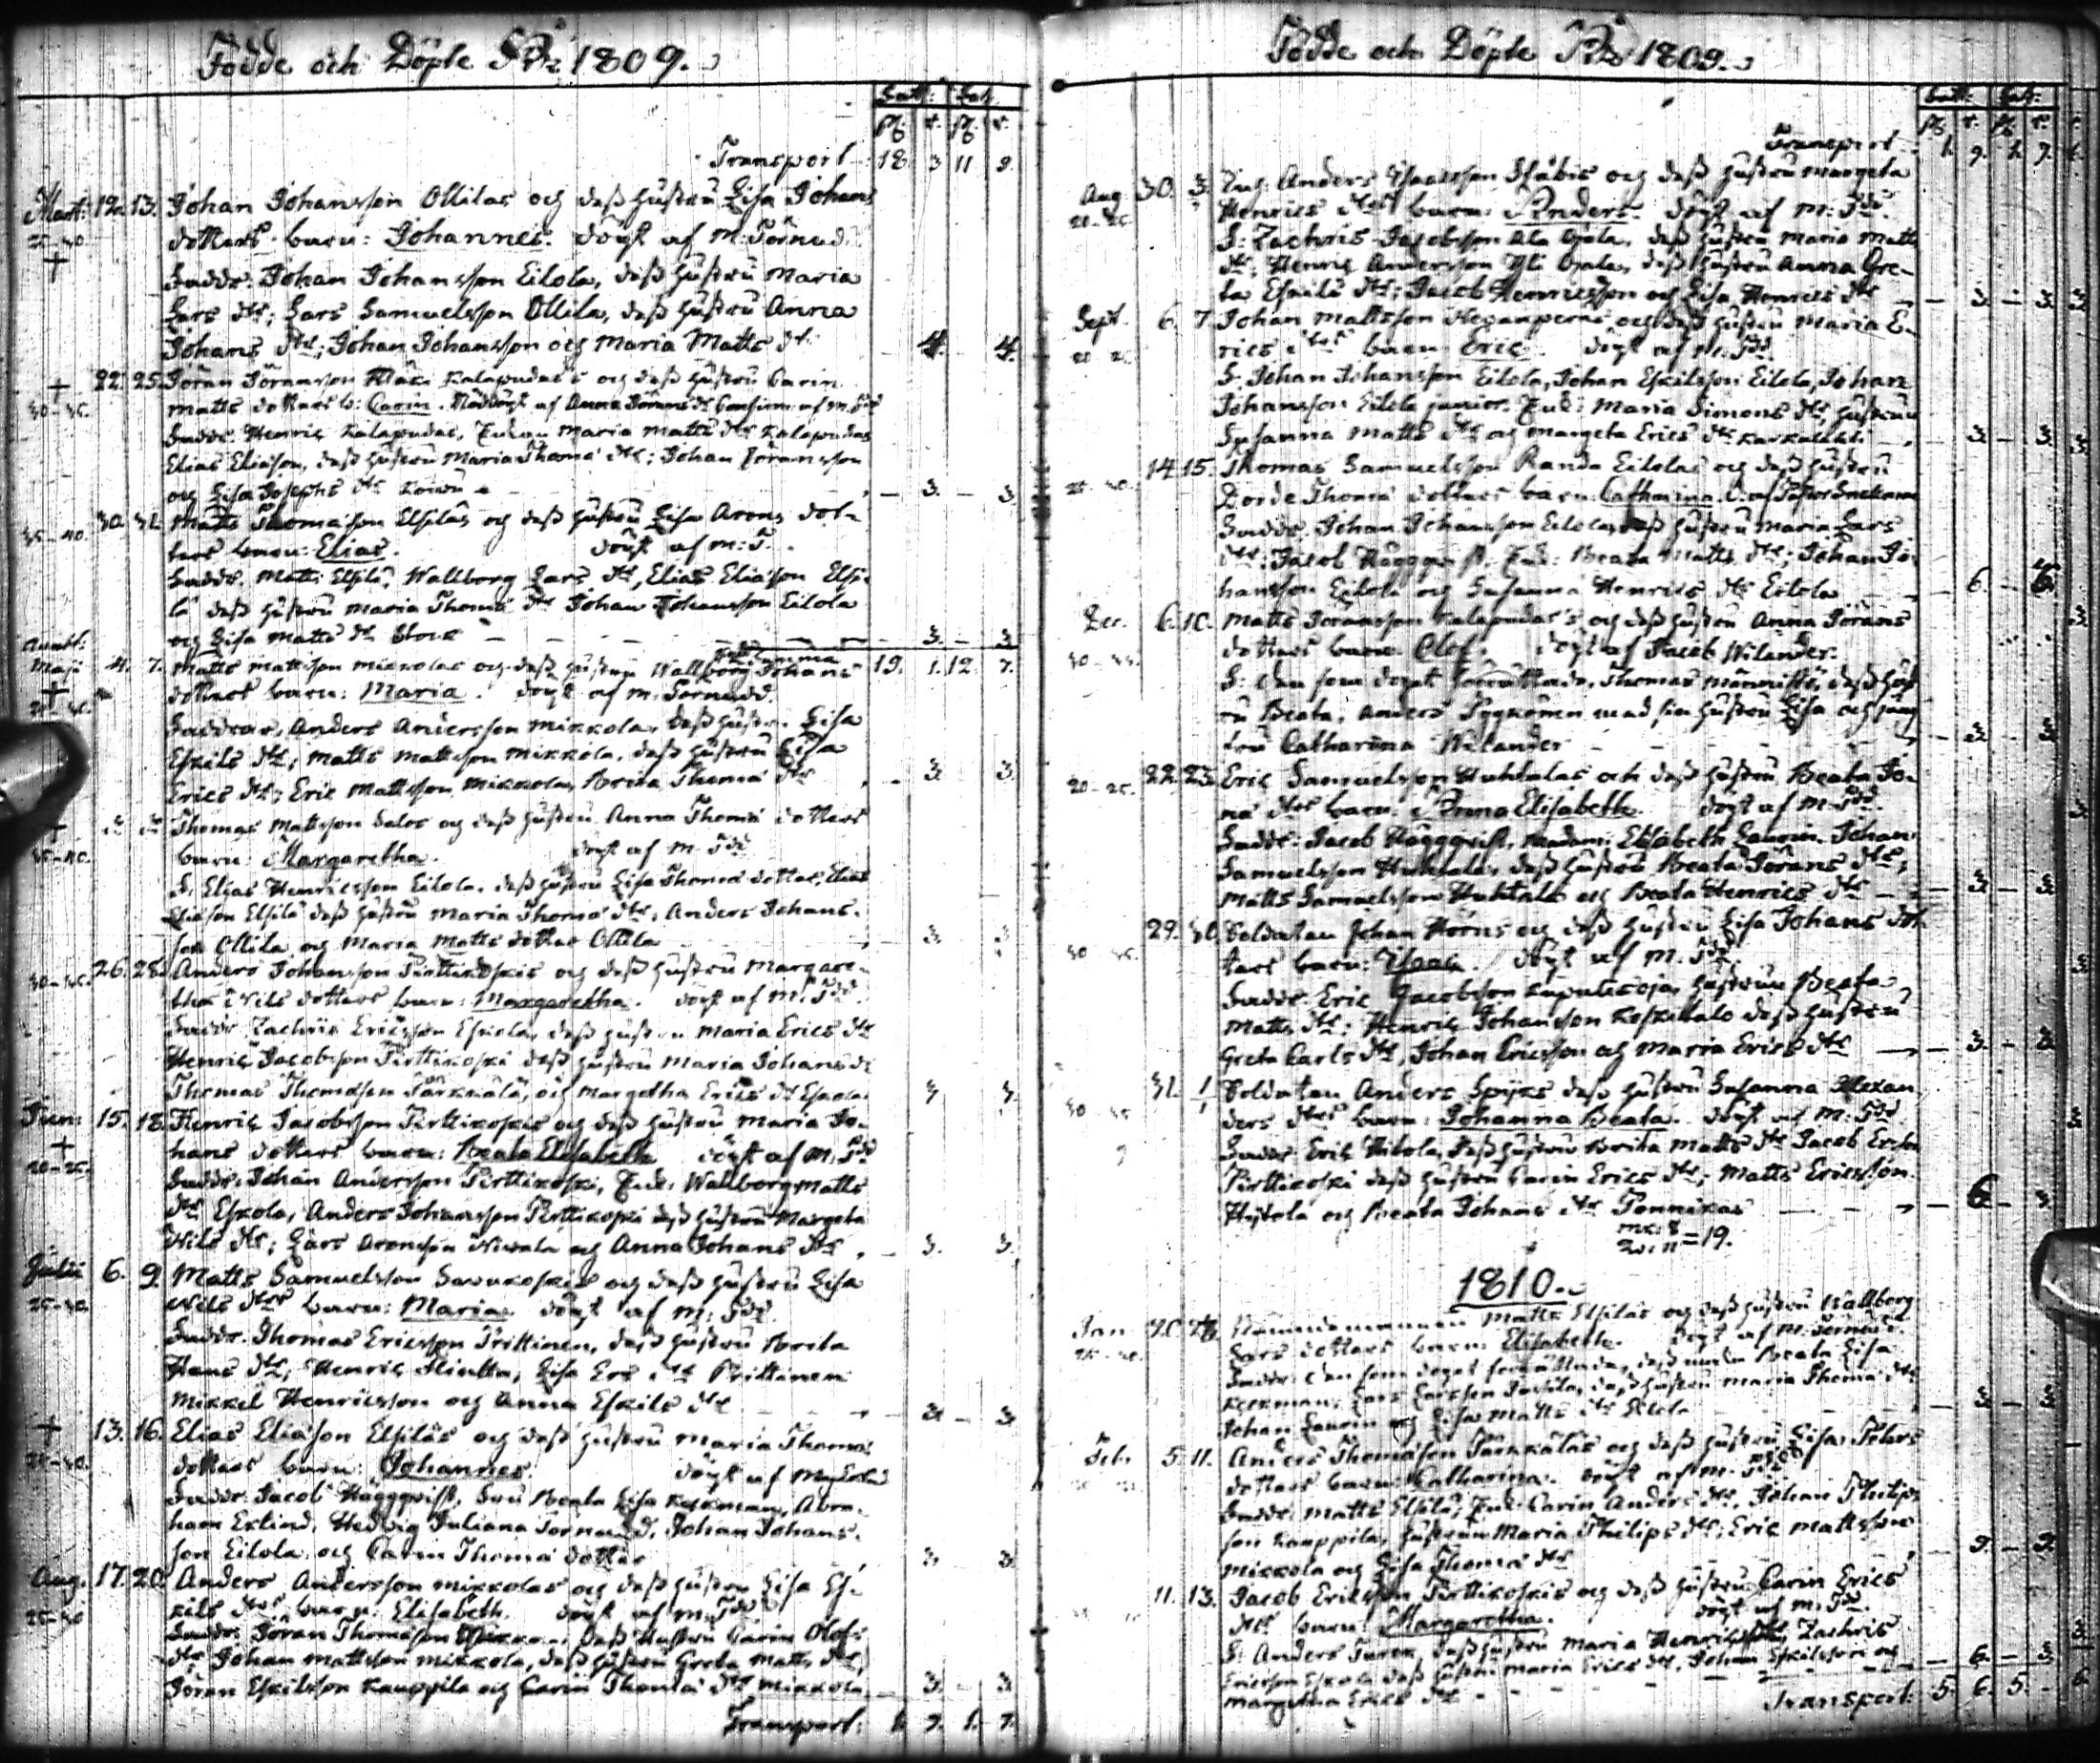 Födde och Döpte År 1809.
Transport 18 3 11 9
Mart: 12. 13. Johan Johansson Ollilas och dess hustru Lisa Johans
dotters barn: Johannes. döpt af M: Törnudd.
Faddr: Johan Johansson Eilola, dess hustru Maria
Lars dtr; Lars Samuelsson Ollila, dess hustru Anna
Johans dtr; Johan Johansson och Maria Matts dr. 4. 4.
22. 25. Jöran Jöransson Kalapudas's och dess hustru Carin
Matts dotters b: Carin. Nöddöpt af Anna Jörans dr Confirm: af M. Tdd
Faddr. Henric Kalapudas, Enkan Maria Matts dtr Kalapudas
Elias Eliasson, dess hustru Maria Thomæ dtr; Johan Jöransson
och Lisa Josephs dtr 3. 3
35-40. 30. 31. Matts Thomasson Elsiläs och dess hustru Lisa Arons dot-
ters barn: Elias. döpt af M: T.
Faddr. Matts Elsilä, Wallborg Lars dtr, Elias Eliasson Elsi-
lä dess hustru Maria Thomæ dtr Johan Johansson Eilola
och Lisa Matts dr 3. 3
Maji 4. 7. Matts Mattsson Mikkolas och dess hustru Wallborg Johans 19. 1. 12. 7.
dotters barn: Maria. döpt af M: Törnudd.
Faddrar, Anders Andersson Mikkola, dess hustru Lisa
Eskils dtr; Matts Mattsson Mikkola, dess hustru Lisa
Erics dtr; Eric Mattsson Mikkola, Brita Thomæ dtr 3. 3.
Thomas Mattsson Salos och dess hustru Anna Thomæ dotters
barn: Margaretha. döpt af M. Tdd
F. Elias Henricsson Eilola, dess hustru Lisa Thomæ dotter, Elias
Eliasson Elsilä dess hustru Maria Thomæ dtr; Anders Johans-
son Ollila och Maria Matts dotter Ollila 3.
26. 28. Anders Johansson Pirttikoskis och dess hustru Margare-
tha Nils dotters barn: Margaretha. döpt af M. Tdd
Faddr. Zachris Ericsson Eskola, dess hustru Maria Erics dtr
Henric Jacobsson Pirttikoski dess hustru Maria Johans dr
Thomas Thomasson Pärkkälä, och Margetha Erics dr Eskola 3. 3.
Jun: 15. 18. Henric Jacobsson Pirttikoskis och dess hustru Maria Jo-
20-25. hans dotters barn: Beata Elisabeth döpt af M. Tdd
Faddr. Johan Andersson Pirttikoski, Enk. Wallborg Matts
dtr Eskola, Anders Johansson Pirttikoski dess hustru Margeta
Nils dtr; Lars Aronsson Niwala och Anna Johans dtr. 3. 3.
Julii 6. 9. Matts Samuelsson Savukoskis och dess hustru Lisa
25-30. Nils dtrs barn: Maria. döpt af M: Tdd
Faddr. Thomas Ericsson Prittinen, dess hustru Brita
Hans dtr; Henric Hiultta, Lisa Ers dtr Prittinen
Mickel Henricsson och Anna Eskils dtr 3. 3.
13. 16. Elias Eliasson Elsiläs och dess hustru Maria Thomæ
dotters barn: Johannes. döpt af
Faddr. Jacob Häggqvist, Fru Beata Lisa Keckman, Abra-
ham Exlind, Hedvig Juliana Törnudd, Johan Johans-
son Eilola, och Carin Thomæ dotter 3. 3.
Aug. 17. 20. Anders Andersson Mikkolas och dess hustru Lisa Es-
25-30 kils dtrs barn: Elisabeth. döpt af M. Tdd
Faddr. Jöran Thomasson dess hustru Carin Olofs
dtr Johan Mattsson Mikkola, dess hustru Greta Matts dtr,
Jöran Eskilsson Kauppila och Carin Thomæ dtr Mikkola 3. 3.
Transport: 1. 9. 1. 7.
Födde och Döpte År 1809.
Transport 1. 9. 1. 7.
Aug 30. 3. Anders Isacsson och dess hustru Margeta
20-25 Henrics dtrs barn: Anders. döpt af M: Tdd.
F: Zachris Jacobsson Ala Ojala, dess hustru Maria Matts
dtr; Henric Andersson Yli Ojala, dess hustru Anna Gre-
ta Eskils dtr; Jacob Henricsson och Lisa Henrics dtr 3. 3.
Sept. 6. 7. Johan Mattsson och dess hustru Maria E-
rics dtrs barn Eric. döpt af M. Tdd
F. Johan Johansson Eilola, Johan Eskilsson Eilola, Johan
Johansson Eilola junior. Enk: Maria Simons dtr, hustrun
Susanna Matts dtr och Margeta Erics dtr 3. 3.
14. 15. Thomas Samuelsson Randa Eilolas och dess hustru
Dorde Thomæ dotters barn Catharina. D: af Pastor Snellman
Faddr. Johan Johansson Eilola, dess hustru Maria Lars
dtr; Jacob Häggqvist, Enk: Beata Matts dtr; Johan Jo-
hansson Eilola och Susanna Henrics dtr Eilola 6 6.
Dec. 6. 10. Matts Jöransson Kalapudas's och dess hustru Anna Jörans
dotters barn Olof. döpt af Jacob Wilander.
F: den som dopet förrättade, Thomas Männistö, dess hust-
ru Beata, Anders Pyykönen med sin hustru Lisa och jung-
fru Catharina Wilander 3. 3.
20-25. 22. 23. Eric Samuelsson Huhtalas och dess hustru Beata Jo-
næ dtrs barn: Anna Elisabeth. döpt af M. Tdd.
Faddr. Jacob Häggqvist, Madam: Elisabeth Laurin. Johan
Samuelsson Huhtala, dess hustru Beata Jörans dtr;
Matts Samuelsson Huhtala och Beata Henrics dtr 3. 3.
29. 30. Soldaten Johan Hörns och dess hustru Lisa Johans dot-
ters barn: Isaac. döpt af M. Tdd.
Faddr. Eric Jacobsson hustrun Beata
Matts dtr: Henric Johansson Koskitalo dess hustru
Greta Carls dtr, Johan Ericsson och Maria Erics dtr 3. 3.
31. 1 Soldaten Anders Spijks dess hustru Susanna Alexan-
ders dtrs barn: Johanna Beata. döpt af M. Tdd
Faddr. Eric Hitola, dess hustru Brita Matts dtr Jacob Ericsson
Pirttikoski dess hustru Carin Erics dtr; Matts Ericsson
Hytola och Beata Johans dtr 6 3.
mk: 8
qv: 11 = 19.
1810.
Jan 20. Nämndemannen Matts Elsiläs och dess hustru Wallborg
Lars dotters barn: Elisabeth. döpt af M. Törnudd.
Faddr: den som dopet förrättade, dess maka Beata Lisa
Keckman, Lars Larsson dess hustru Maria Thomæ dtr
Johan Laurin och Lisa Matts dtr 3. 3.
Feb. 5. 11. Anders Thomasson Pärkkäläs och dess hustru Lisa Petters
dotters barn: Catharina. döpt af M. Tdd
Faddr: Matts Elsilä; Enk: Carin Anders dtr. Johan Philips
son Kauppila, hustrun Maria Philips dtr; Eric Mattsson
Mikkola och Lisa Thomæ dtr 9. 9.
11. 13. Jacob Ericsson Pirttikoskis och dess hustru Carin Erics
dtrs barn: Margaretha. döpt af M. Tdd.
F: Anders dess hustru Maria Zachris
Ericsson Eskola dess hustru Maria Erics dtr, Johan Eskilsson och
Margetha Erics dtr 6. 3.
Transport: 5. 6. 5.